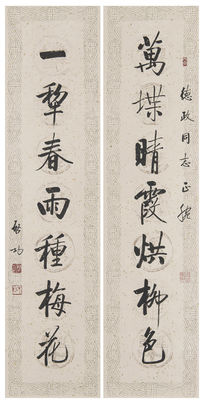 萬堞晴霞烘柳色
德政同志正腕
一犁春雨種梅花
啟功